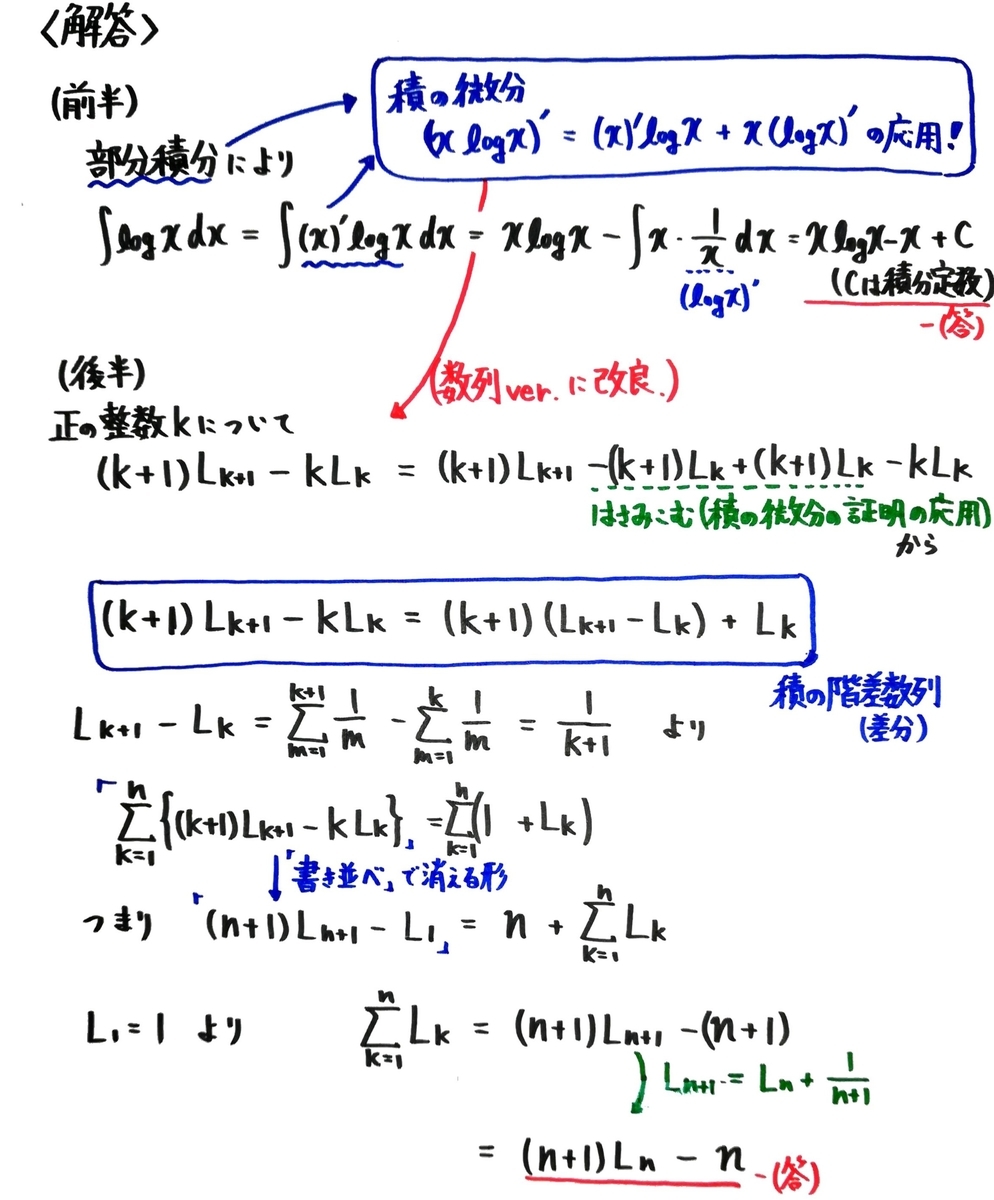 〈解答〉
(前半)
積の微分
(x log x)' = (x)' log x + x (log x)' の応用!
部分積分により
∫ log x dx = ∫ (x)' log x dx = x log x − ∫ x · 1/x dx = x log x − x + C
(log x)'
(Cは積分定数)
−(答)
(後半)
(数列ver.に改良.)
正の整数kについて
(k+1)L_{k+1} − kL_k = (k+1)L_{k+1} −(k+1)L_k + (k+1)L_k − kL_k
はさみこむ(積の微分の証明の応用)
から
(k+1)L_{k+1} − kL_k = (k+1)(L_{k+1} − L_k) + L_k
積の階差数列
(差分)
L_{k+1} − L_k = Σ_{m=1}^{k+1} 1/m − Σ_{m=1}^{k} 1/m = 1/(k+1) より
「Σ_{k=1}^{n} {(k+1)L_{k+1} − kL_k}」 = Σ_{k=1}^{n} (1 + L_k)
↓「書き並べ」で消える形
つまり 「(n+1)L_{n+1} − L_1」 = n + Σ_{k=1}^{n} L_k
L_1 = 1 より Σ_{k=1}^{n} L_k = (n+1)L_{n+1} − (n+1)
L_{n+1} = L_n + 1/(n+1)
= (n+1)L_n − n −(答)